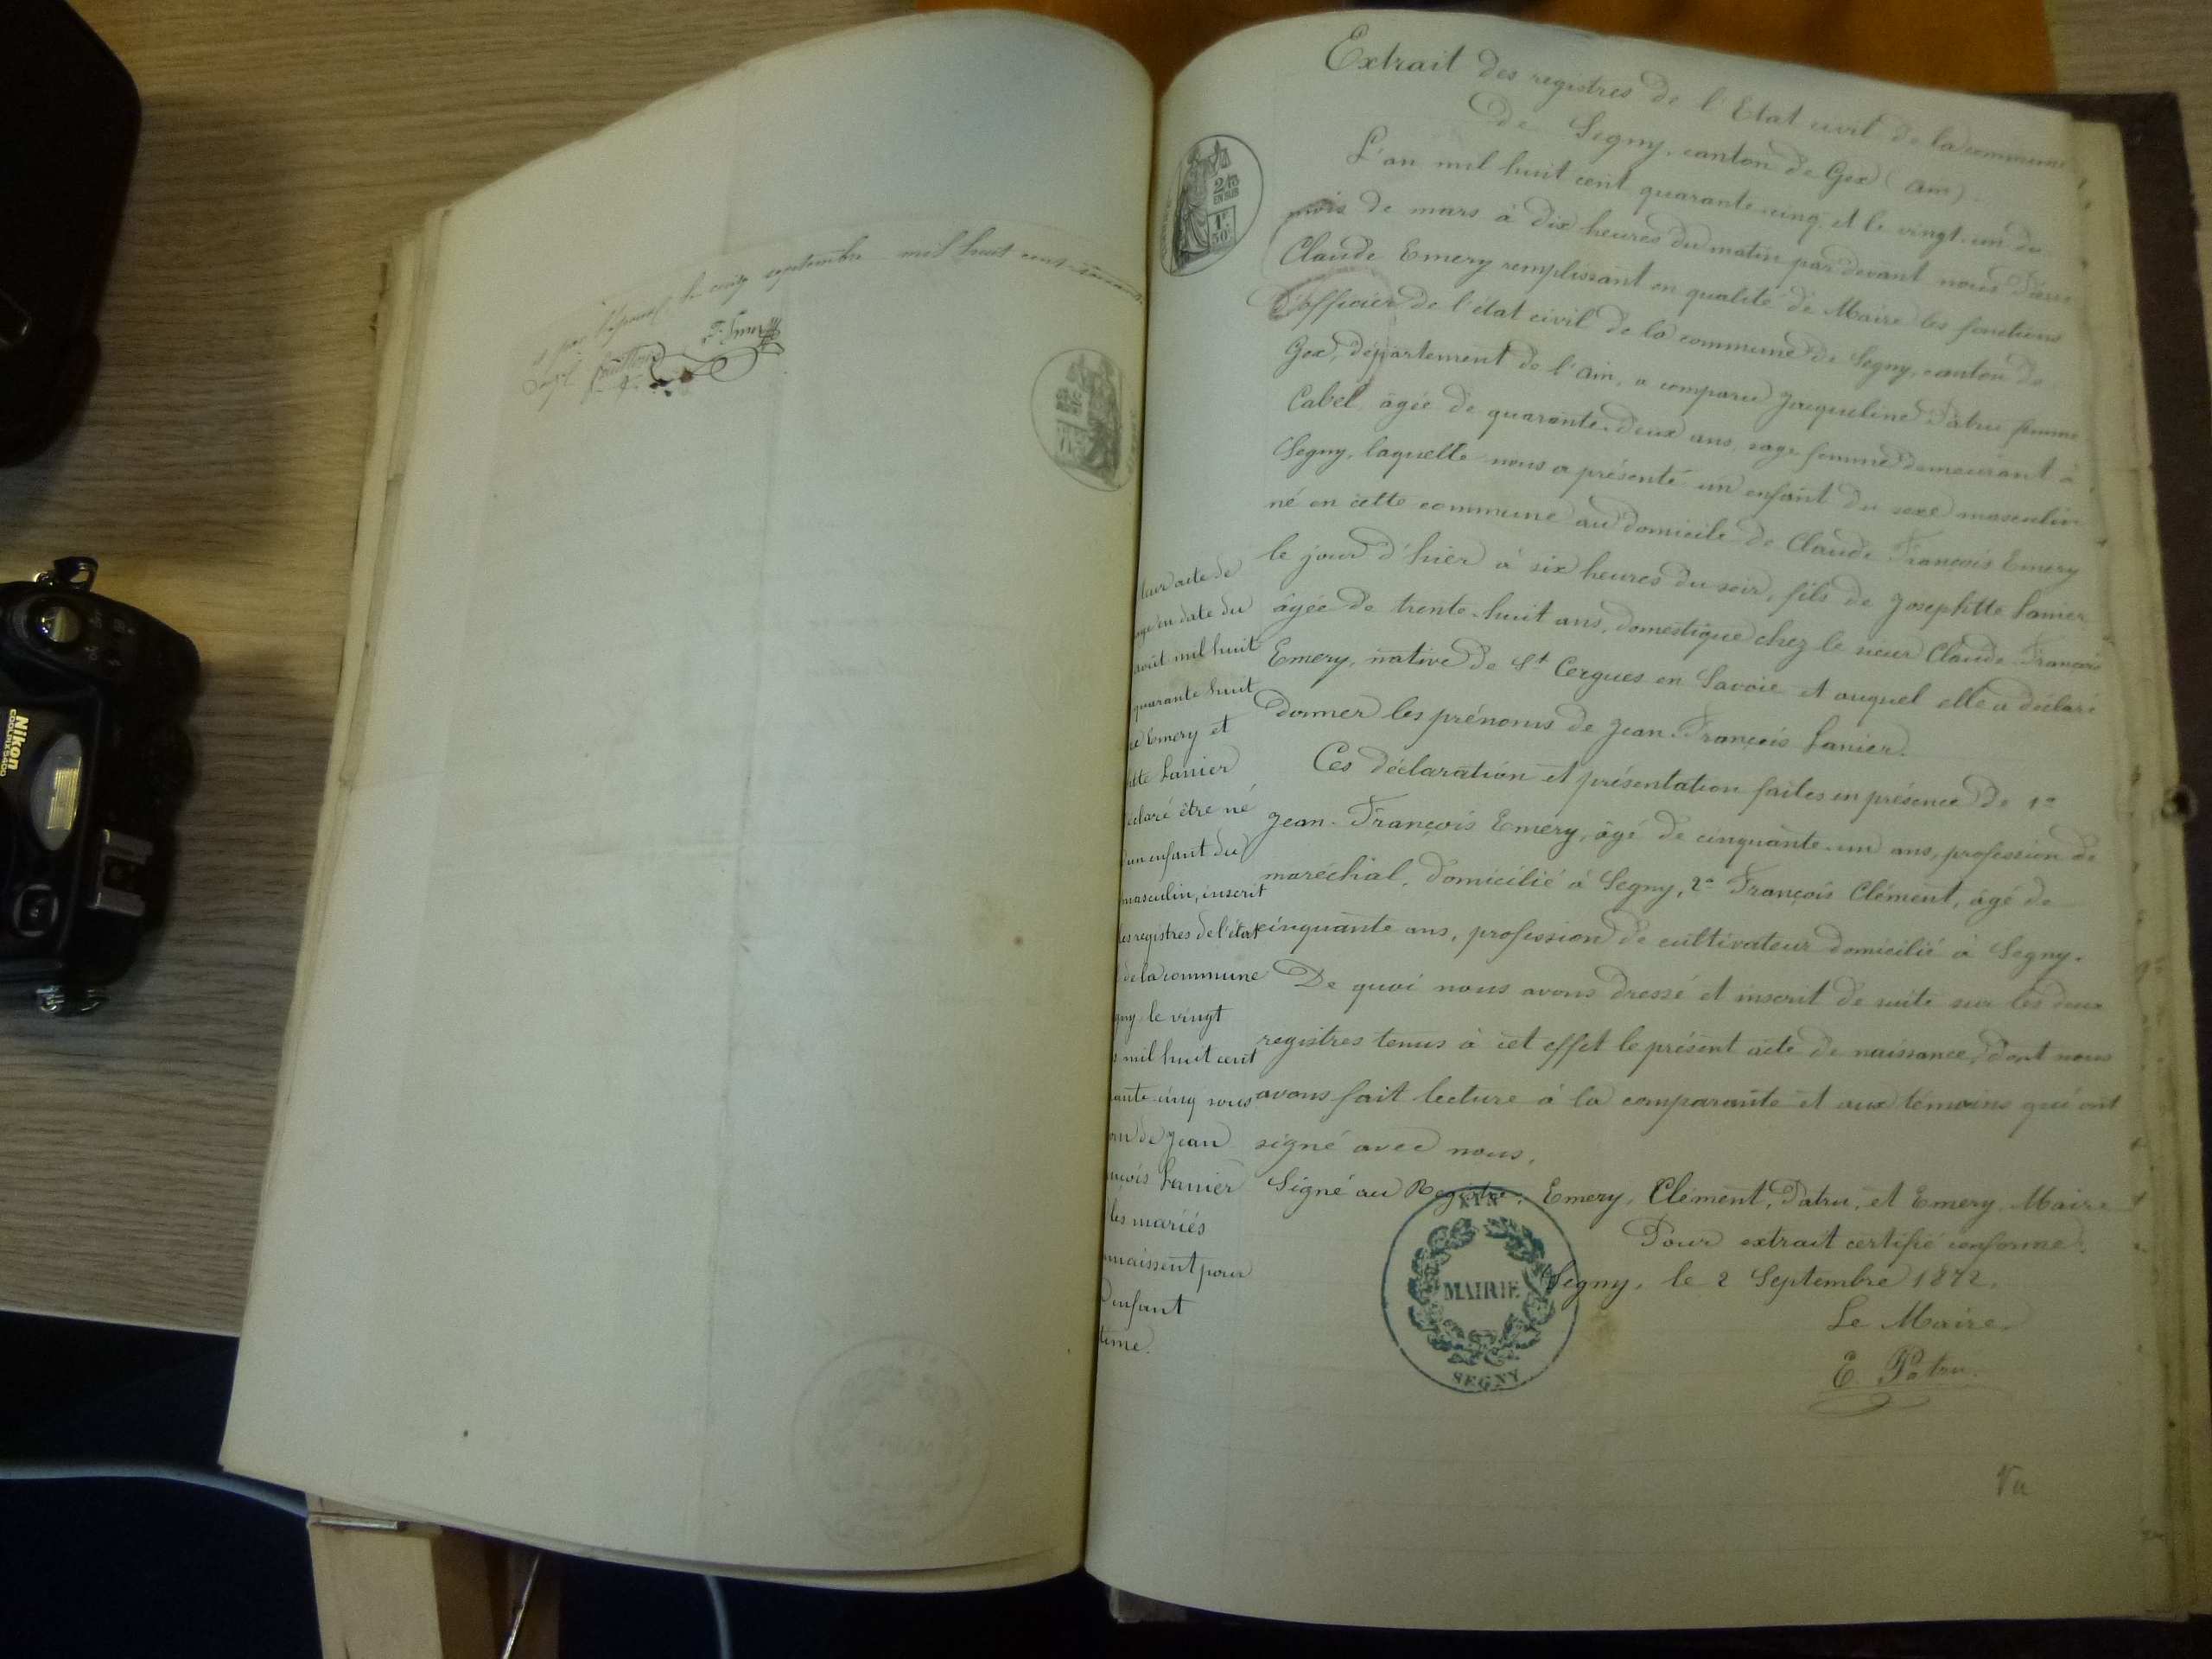 le cinq septembre mil huit cent
Extrait des registres de l'Etat civil de la commune
de Segny, canton de Gex (Ain).
L'an mil huit cent quarante-cinq et le vingt-un du
mois de mars à dix heures du matin par devant nous
Claude Emery remplissant en qualité de Maire les fonctions
d'officier de l'état civil de la commune de Segny, canton de
Gex, département de l'Ain, a comparu Jacqueline Patru femme
Cabel, âgée de quarante-deux ans, sage femme demeurant à
Segny, laquelle nous a présenté un enfant du sexe masculin
né en cette commune au domicile de Claude François Emery
le jour d'hier à six heures du soir, fils de Josephtte Lanier
âgée de trente-huit ans, domestique chez le sieur Claude François
Emery, native de St Cergues en Savoie et auquel elle a déclaré
donner les prénoms de Jean-François Lanier.
Ces déclaration et présentation faites en présence de 1°
Jean-François Emery, âgé de cinquante-un ans, profession de
maréchal, domicilié à Segny, 2° François Clément, âgé de
cinquante ans, profession de cultivateur domicilié à Segny.
De quoi nous avons dressé et inscrit de suite sur les deux
registres tenus à cet effet le présent acte de naissance, dont nous
avons fait lecture à la comparante et aux témoins qui ont
signé avec nous.
Signé au Registre: Emery, Clément, Patru, et Emery, Maire
Pour extrait certifié conforme.
Segny, le 2 Septembre 1872.
Le Maire,
E. Patru
Vu
leur acte de
en date du
août mil huit
quarante huit
Emery et
tte Lanier
claré être né
un enfant du
masculin, inscrit
es registres de l'état
de la commune
gny le vingt
mil huit cent
ante-cinq sous
om de Jean
nçois Lanier
les mariés
nnaissent pour
enfant
time.
2/10
EN SUS
1F
50C
AIN
MAIRIE
SEGNY
Nikon
COOLPIX 5400